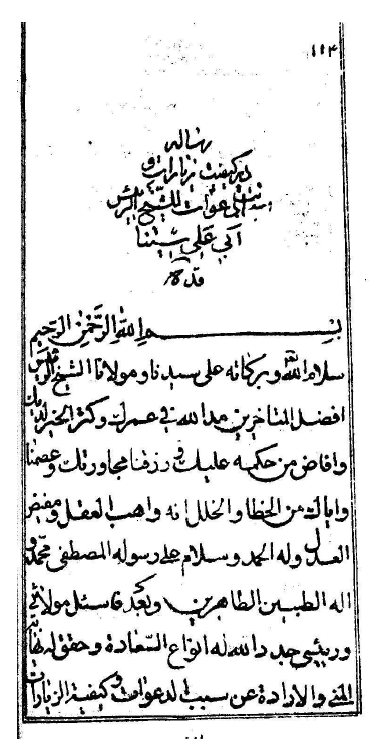 ۱۱۴
رساله
در کیفیت زیارات و
دعوات للشیخ الرئیس
ابی علی سینا
قده
بسم الله الرحمن الرحیم
سلام الله و برکاته علی سیدنا و مولانا الشیخ الرئیس
افضل المتاخرین مد الله فی عمرک و کثر الخیر لدیک
و افاض من حکمه علیک و رزقنا مجاورتک و عصمنا
و ایاک من الخطا و الخلل انه واهب العقل و مفیض
العدل و له الحمد و سلام علی رسوله المصطفی محمد و
اله الطیبین الطاهرین و بعد فاسئل مولائی
و رئیسی جدد الله له انواع السعادة و حقق له نهایة
المنی و الارادة عن سبب الدعوات و کیفیة الزیارات